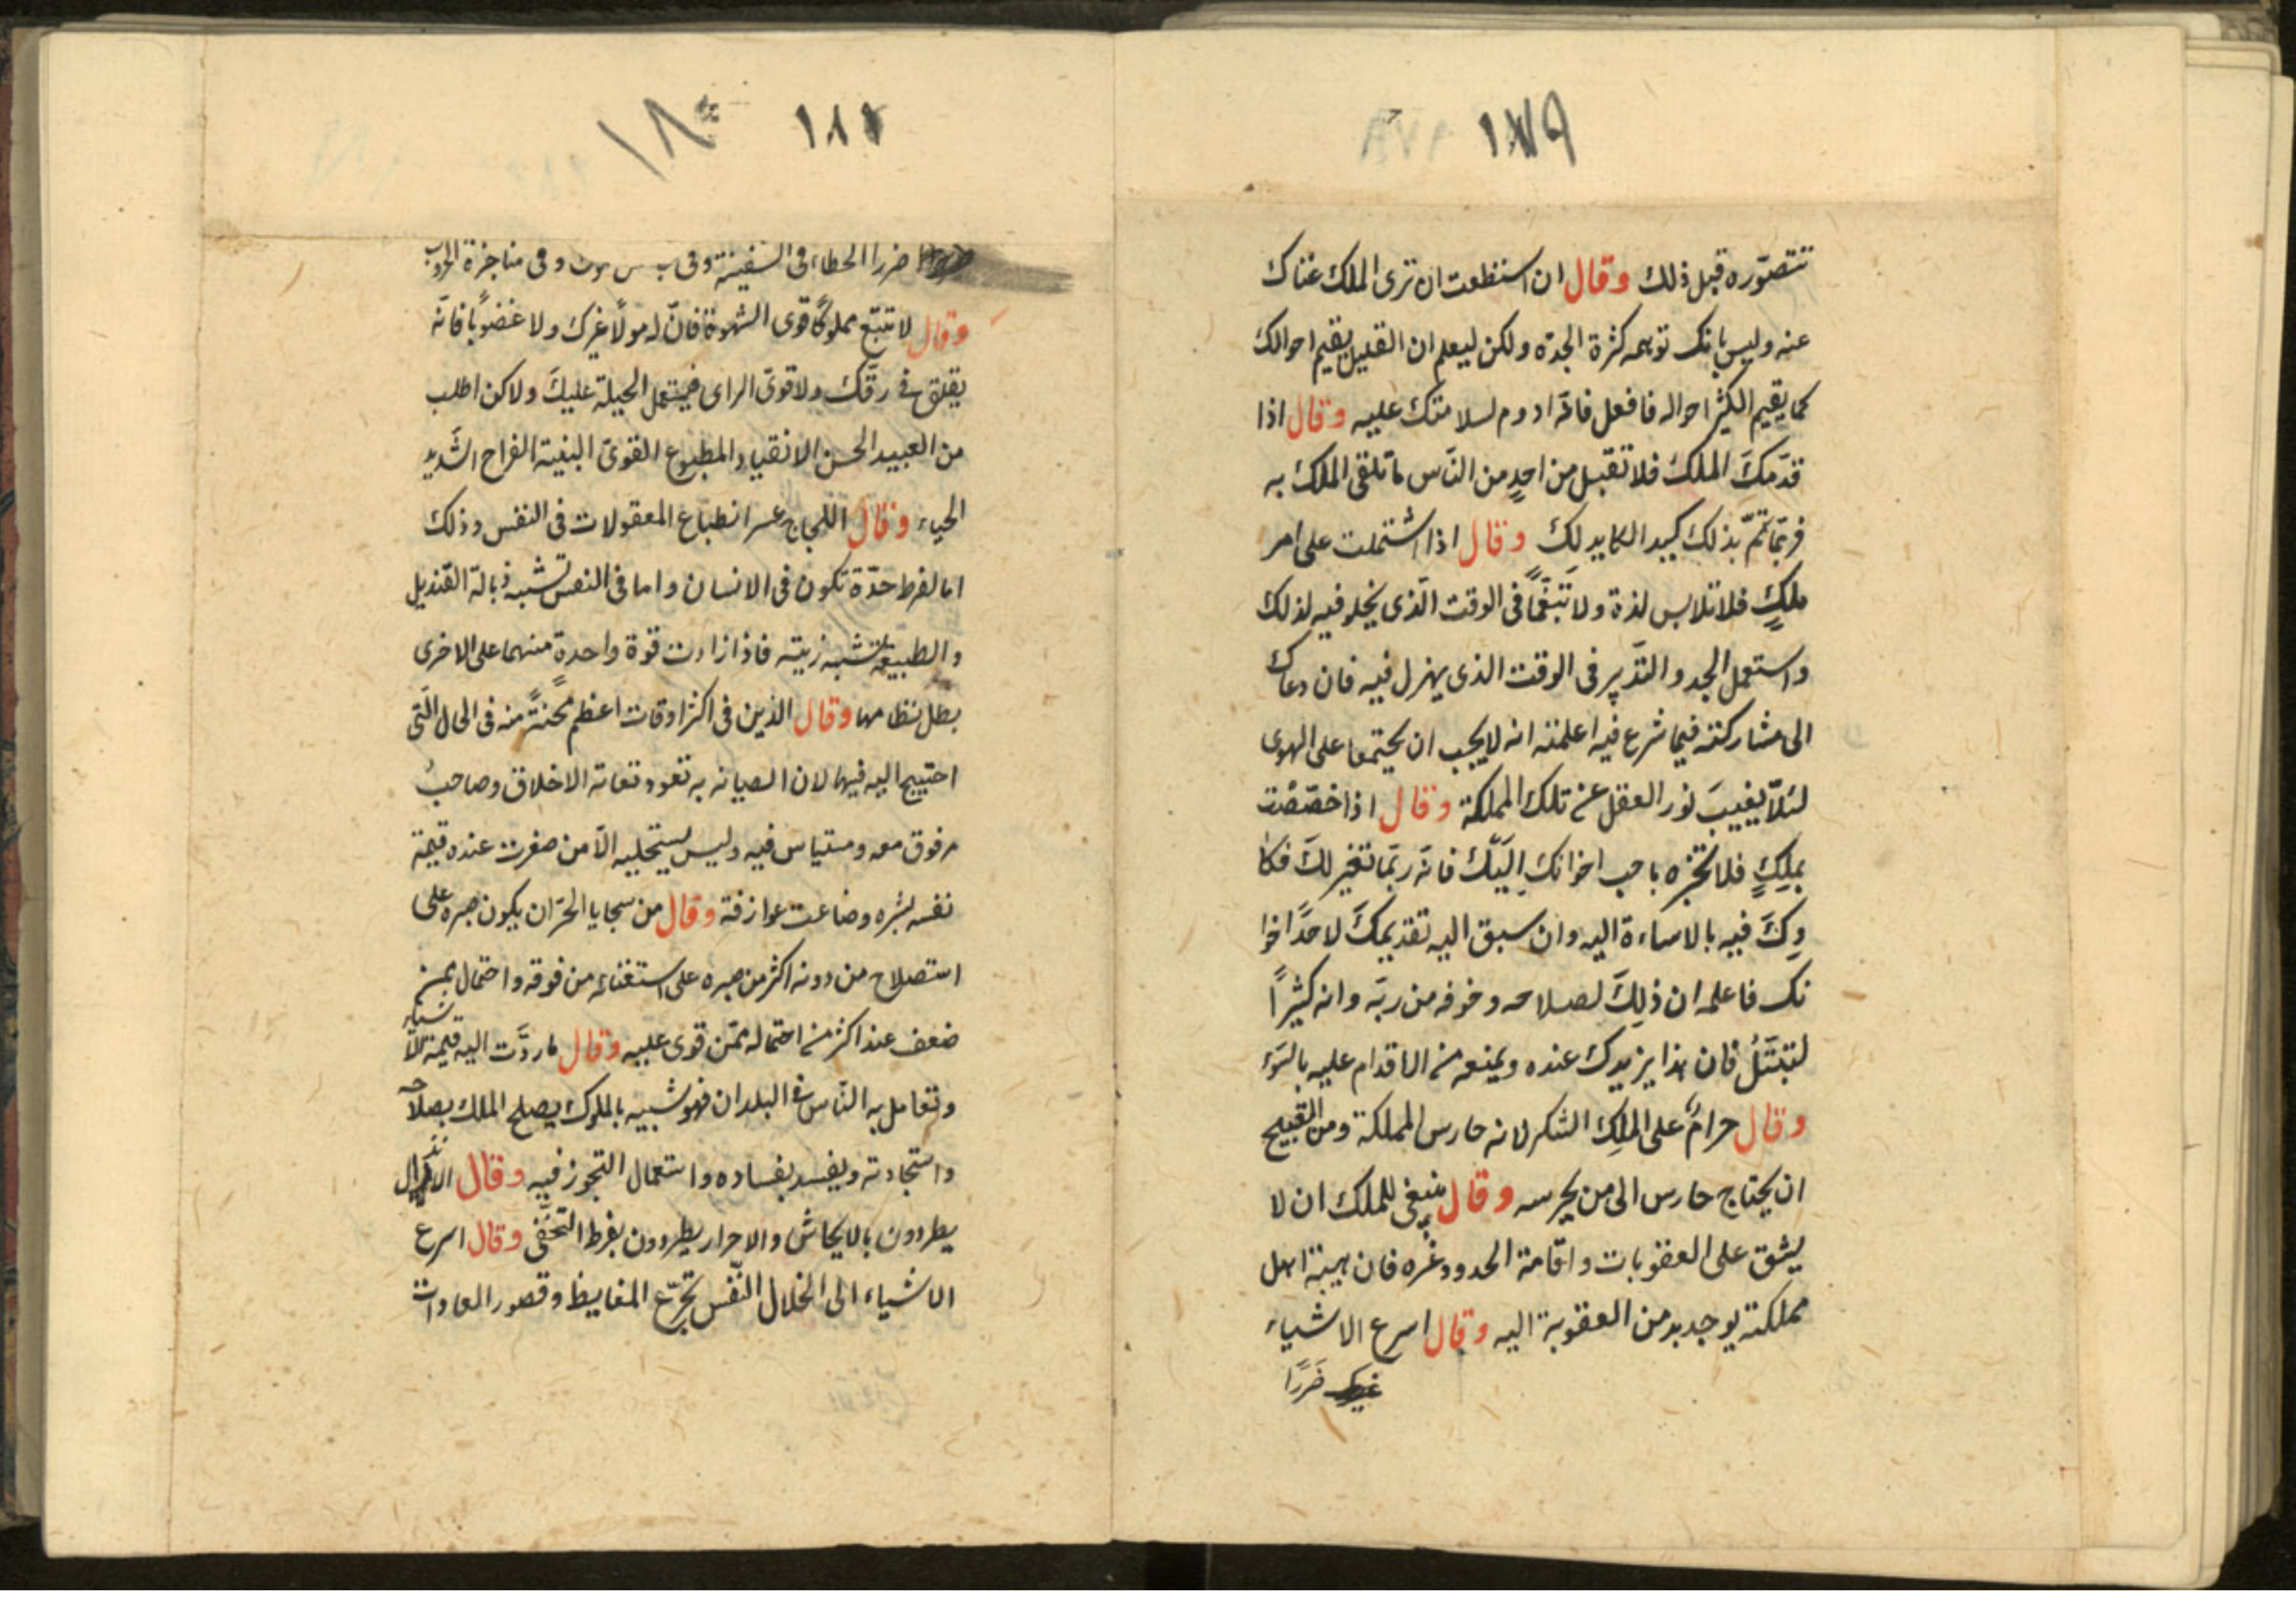 ١٧٩
تتصوّره قبل ذلك وقال ان استطعت ان ترى الملك غناك
عنه وليس بانك توهمه كثرة الجدّه ولكن ليعلم ان القليل يقيم احوالك
كما يقيم الكثير احواله فافعل فانّه ادوم لسلامتك عليه وقال اذا
قدّمكَ الملك فلا تقبل من احدٍ من النّاس ما تلقى الملك به
فربّما تمّ بذلك كيد المكايد لكَ وقال اذا اشتملت على امر
ملكٍ فلا تلابس لذة ولا تنغّمًا فى الوقت الّذى يخلو فيه لذلك
واستعمل الجد والتدبير فى الوقت الذى يهزل فيه فان دعاك
الى مشاركته فيما شرع فيه اعلمته انه لا يجب ان يجتمعا على الهوى
لئلّا يغيبَ نور العقل عن تلك المملكة وقال اذا خصّصْت
بملِكٍ فلا تخبره باحب اخوانك اِليَك فانّه ربّما تغير لكَ فكا
وِكَ فيه بالاساءة اليه وان سبق اليه تقديمكَ لاحدًاخوا
نك فاعلمه ان ذلِكَ لصلاحه وخوفه من ربّه وانه كثيرًا
لتبتّلُ فان هذا يزيدك عنده ويمنعه من الاقدام عليه بالسّوء
وقال حرامٌ على الملِك الشكر لانه حارس المملكة ومن القبيح
ان يحتاج حارس الى من يحرسه وقال ينبغى للملك ان لا
يشق على العقوبات واقامة الحدود غره فان هيبة اهل
مملكته يوجد بد من العقوبة اليه وقال اسرع الاشياء
ضَررًا
١٨١ ١٨٠
ضررا الخطاء فى السفينة وفى وفى مناجزة الحروب
وقال لا تبتع مملوكًا قوى الشهوة فانّ له مولًا غيرك ولا غضوبًا فانّه
يقلق فى رقّك ولا قوىّ الراى فيستعمل الحيلة عليكَ ولاكن اطلب
من العبيد الحسن الانقياد المطبوع القوىّ البنية الفراح الشّديد
الحياء وقال اللجاج عسر انطباع المعقولات فى النفس وذلك
اما لفرط حدّة تكون فى الانسان واما فى النفس تشبه ذبالة القنديل
والطبيعة تشبه زيته فاذا زادت قوة واحدةٍ منهما على الاخرى
بطل نظامها وقال الذين فى اكثر اوقات اعظم محنتًه منه فى الحال الّتى
احتييج اليه فيها لان الصيانه به تعود تعاته الاخلاق وصاحبُ
مرفوق معه ومستياس فيه وليس يستجليه الّا من صغرت عنده قيمة
نفسه لشره وضاعت عوازفة وقال من سجايا الحرّ ان يكون صبره على
استصلاح من دونه اكثر من صبره على استغنائه من فوقه واحتمال لمن
ضعف عند اكثر من احتماله ممّن قوى عليه وقال ما ردّت اليه قيمة للاشياء
وتعامل به النّاس فى البلدان فهو شبيه بالملوك يصلح الملك بصلاحه
واستجادته ويفسد بفساده واستعمال التجوز فيه وقال الانذال
يطردون بالايحاش والاحرار يطردون بفرط التحفّى وقال اسرع
الاشياء الى انخلال النّفس تجرّع المغايظ وقصور العادات